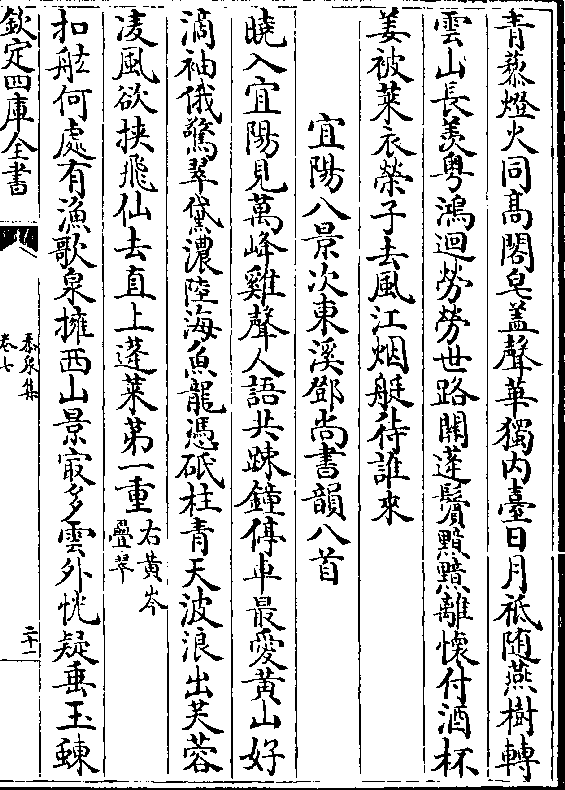 青藜燈火同髙閣皂盖聲華獨内臺日月祗随燕樹轉
雲山長羡粤鴻迴勞勞世路關蓬鬢黯黯離懷付酒杯
姜被萊衣榮子去風江烟艇待誰來
宜陽八景次東溪鄧尚書韻八首
曉入宜陽見萬峰雞聲人語共踈鐘停車最愛黄山好
滴袖俄驚翠黛濃陸海魚龍憑砥柱青天波浪出芙蓉
凌風欲挟飛仙去直上蓬萊第一重右黄岑疊翠
扣舷何處有漁歌泉擁西山景㝡多雲外恍疑垂玉蝀
欽定四庫全書
泰泉集
卷七
二十二